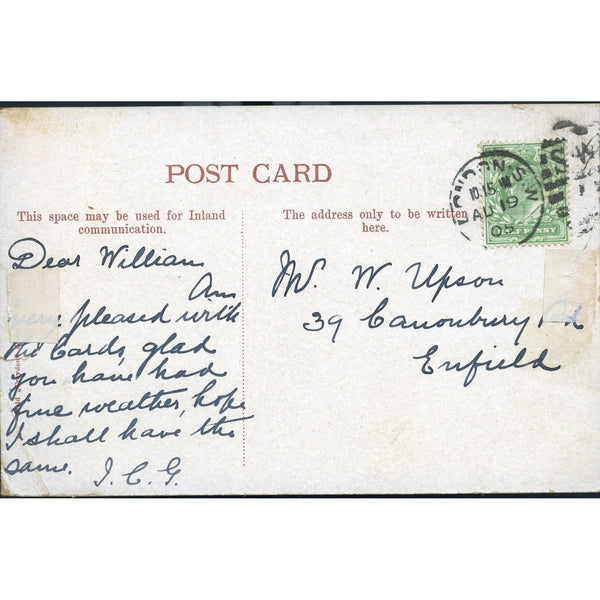 POST CARD
This space may be used for Inland
communication.
The address only to be written
here.
Dear William
Am
very pleased with
the Cards, glad
you have had
fine weather, hope
I shall have the
same. I. C. G.
Mr. W. Upson
39 Canonbury Rd
Enfield
LONDON. S.W
10.15
AU 19
05
HALF PENNY